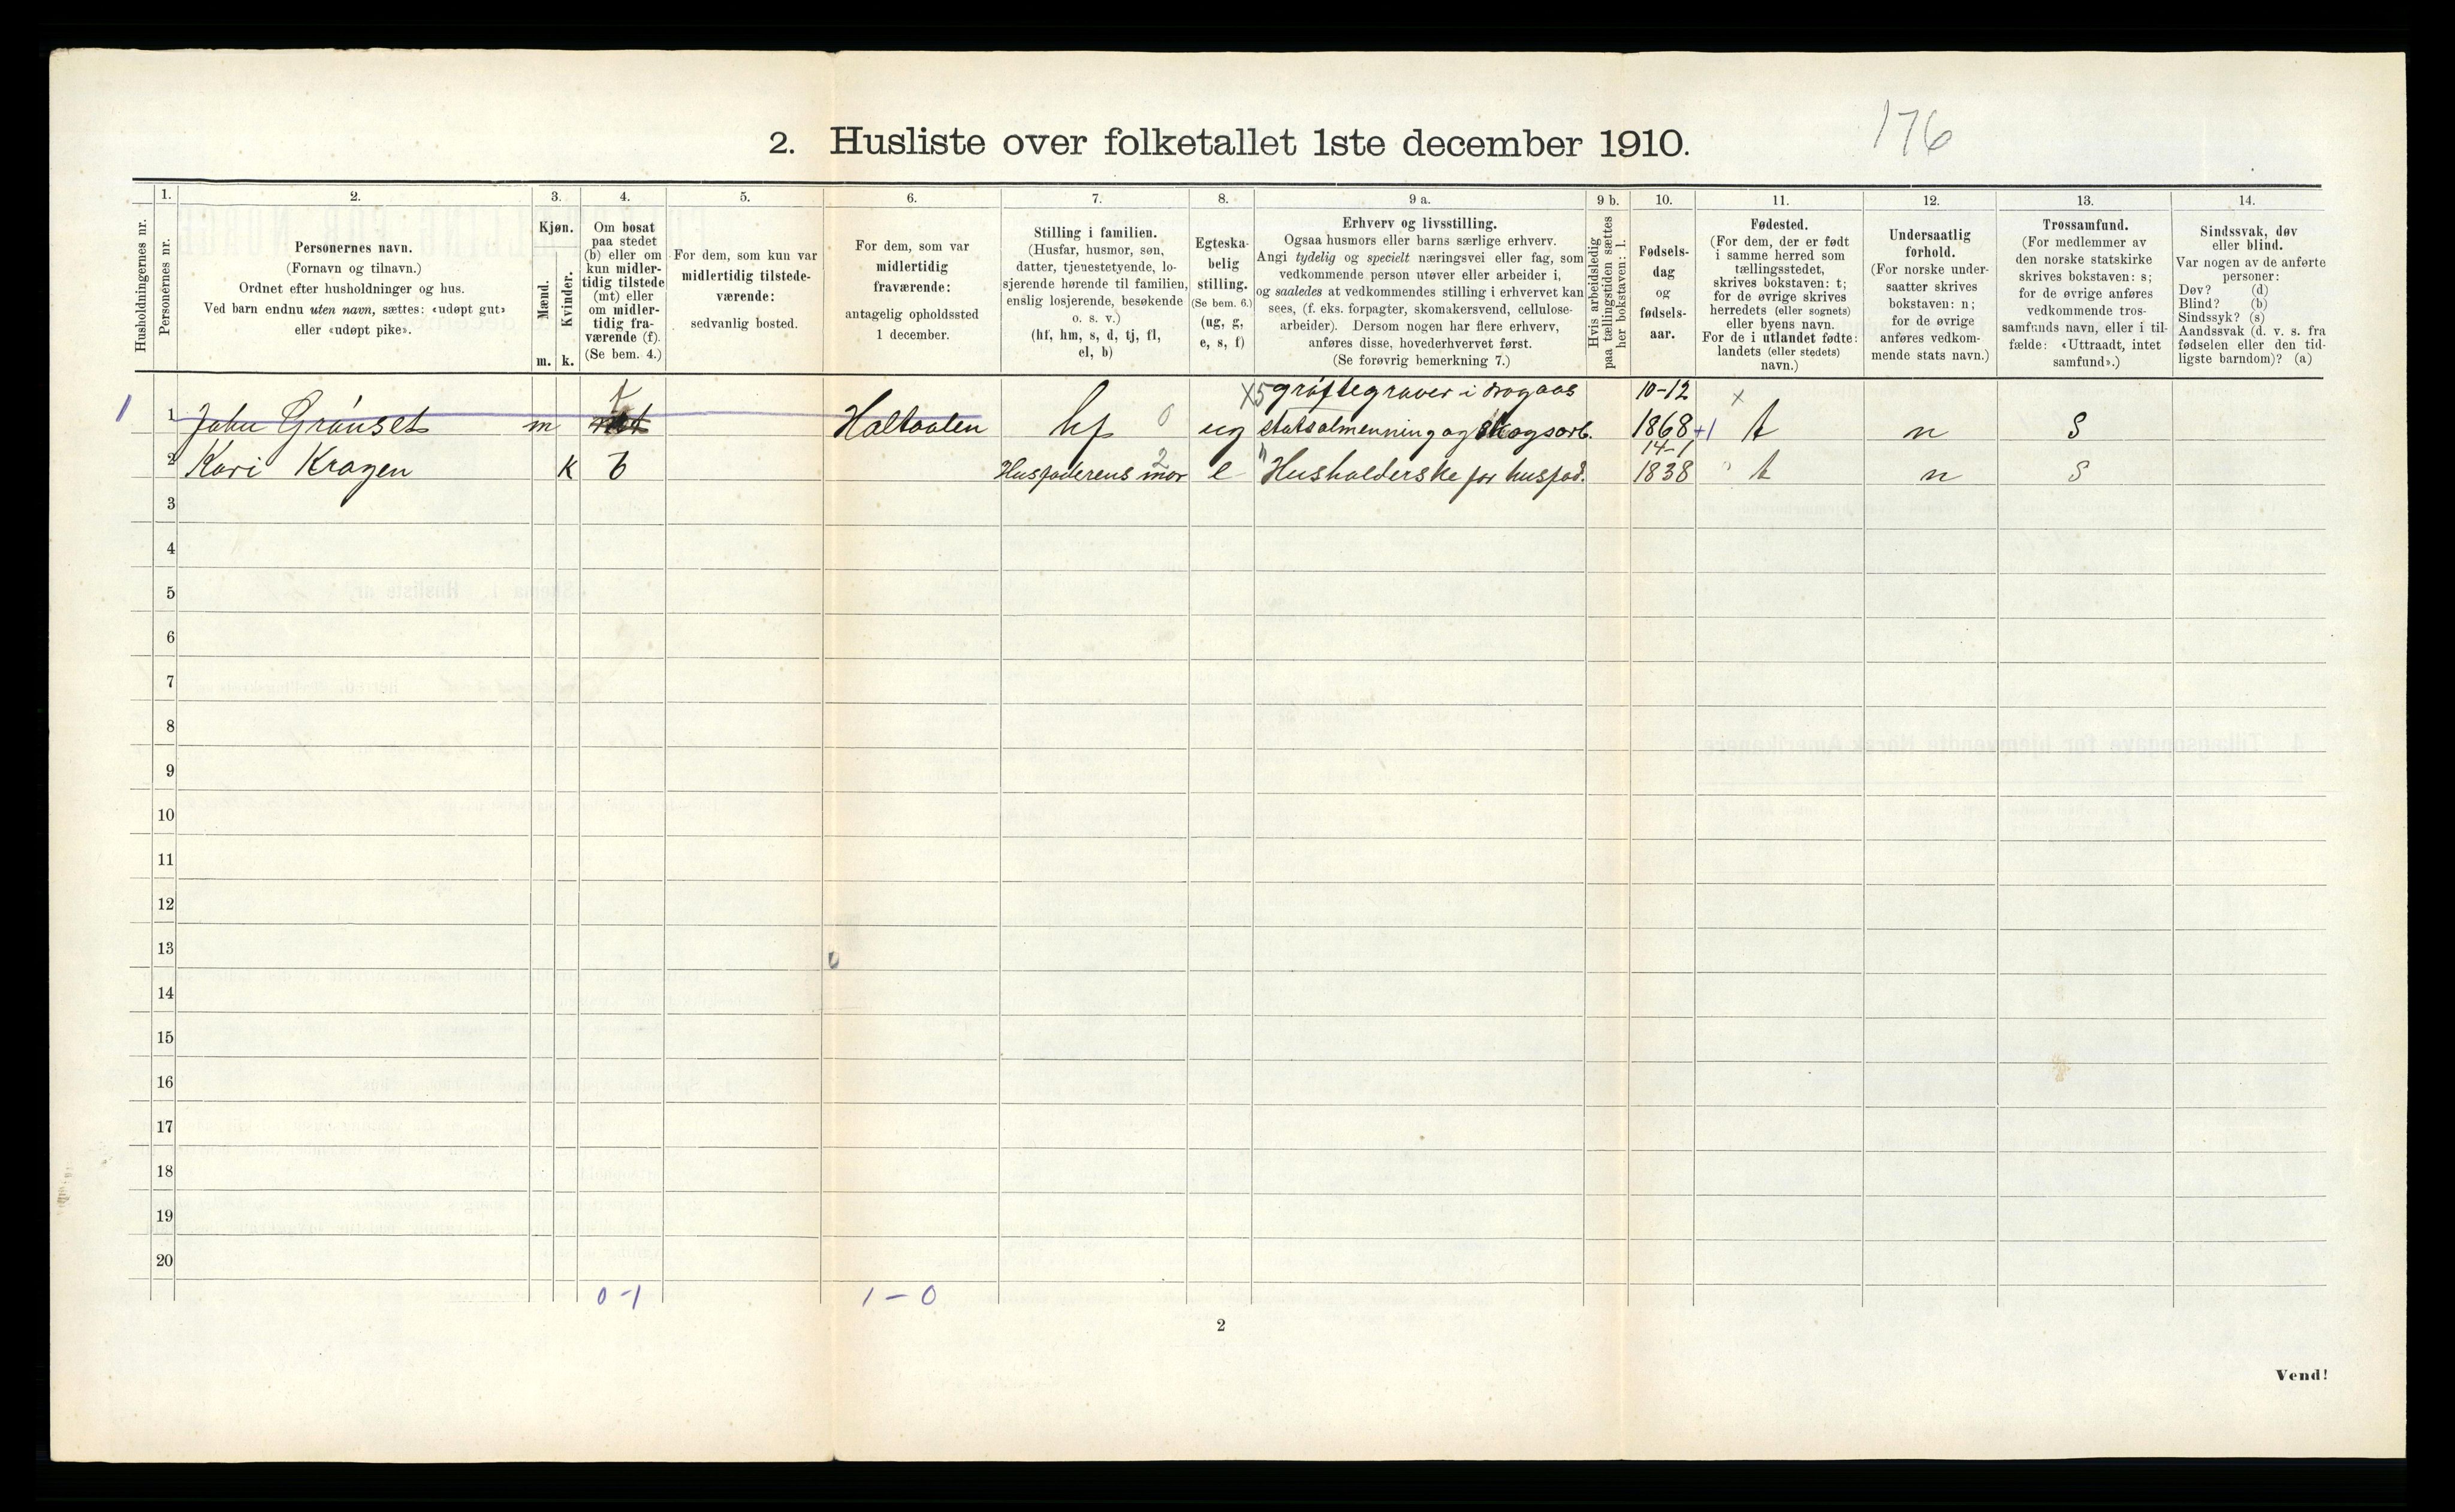 176
2. Husliste over folketallet 1ste december 1910.
Husholdningernes nr.
1.
Personernes nr.
2.
Personernes navn.
(Fornavn og tilnavn.)
Ordnet efter husholdninger og hus.
Ved barn endnu uten navn, sættes: «udøpt gut»
eller «udøpt pike».
3.
Kjøn.
Mænd.
Kvinder.
m. k.
4.
Om bosat
paa stedet
(b) eller om
kun midler-
tidig tilstede
(mt) eller
om midler-
tidig fra-
værende (f).
(Se bem. 4.)
5.
For dem, som kun var
midlertidig tilstede-
værende:
sedvanlig bosted.
6.
For dem, som var
midlertidig
fraværende:
antagelig opholdssted
1 december.
7.
Stilling i familien.
(Husfar, husmor, søn,
datter, tjenestetyende, lo-
sjerende hørende til familien,
enslig losjerende, besøkende
o. s. v.)
(hf, hm, s, d, tj, fl,
el, b)
8.
Egteska-
belig
stilling.
(Se bem. 6.)
(ug, g,
e, s, f)
9 a.
Erhverv og livsstilling.
Ogsaa husmors eller barns særlige erhverv.
Angi tydelig og specielt næringsvei eller fag, som
vedkommende person utøver eller arbeider i,
og saaledes at vedkommendes stilling i erhvervet kan
sees, (f. eks. forpagter, skomakersvend, cellulose-
arbeider). Dersom nogen har flere erhverv,
anføres disse, hovederhvervet først.
(Se forøvrig bemerkning 7.)
9 b.
Hvis arbeidsledig
paa tællingstiden sættes
her bokstaven: l.
10.
Fødsels-
dag
og
fødsels-
aar.
11.
Fødested.
(For dem, der er født
i samme herred som
tællingsstedet,
skrives bokstaven: t;
for de øvrige skrives
herredets (eller sognets)
eller byens navn.
For de i utlandet fødte:
landets (eller stedets)
navn.)
12.
Undersaatlig
forhold.
(For norske under-
saatter skrives
bokstaven: n;
for de øvrige
anføres vedkom-
mende stats navn.)
13.
Trossamfund.
(For medlemmer av
den norske statskirke
skrives bokstaven: s;
for de øvrige anføres
vedkommende tros-
samfunds navn, eller i til-
fælde: «Uttraadt, intet
samfund».)
14.
Sindssvak, døv
eller blind.
Var nogen av de anførte
personer:
Døv? (d)
Blind? (b)
Sindssyk? (s)
Aandssvak (d. v. s. fra
fødselen eller den tid-
ligste barndom)? (a)
f X5 grøftegraver i 10-12 x
1 1 John Grønset m Haltaalen hf 0 ug statsalmenning og skogsarb. 1868 +1 t n S
14-1
2 Kari Kragen k b Husfaderens mor 2 e " Husholderske for husfad. 1838 t n S
3
4
5
6
7
8
9
10
11
12
13
14
15
16
17
18
19
20
0-1 1-0
2
Vend!